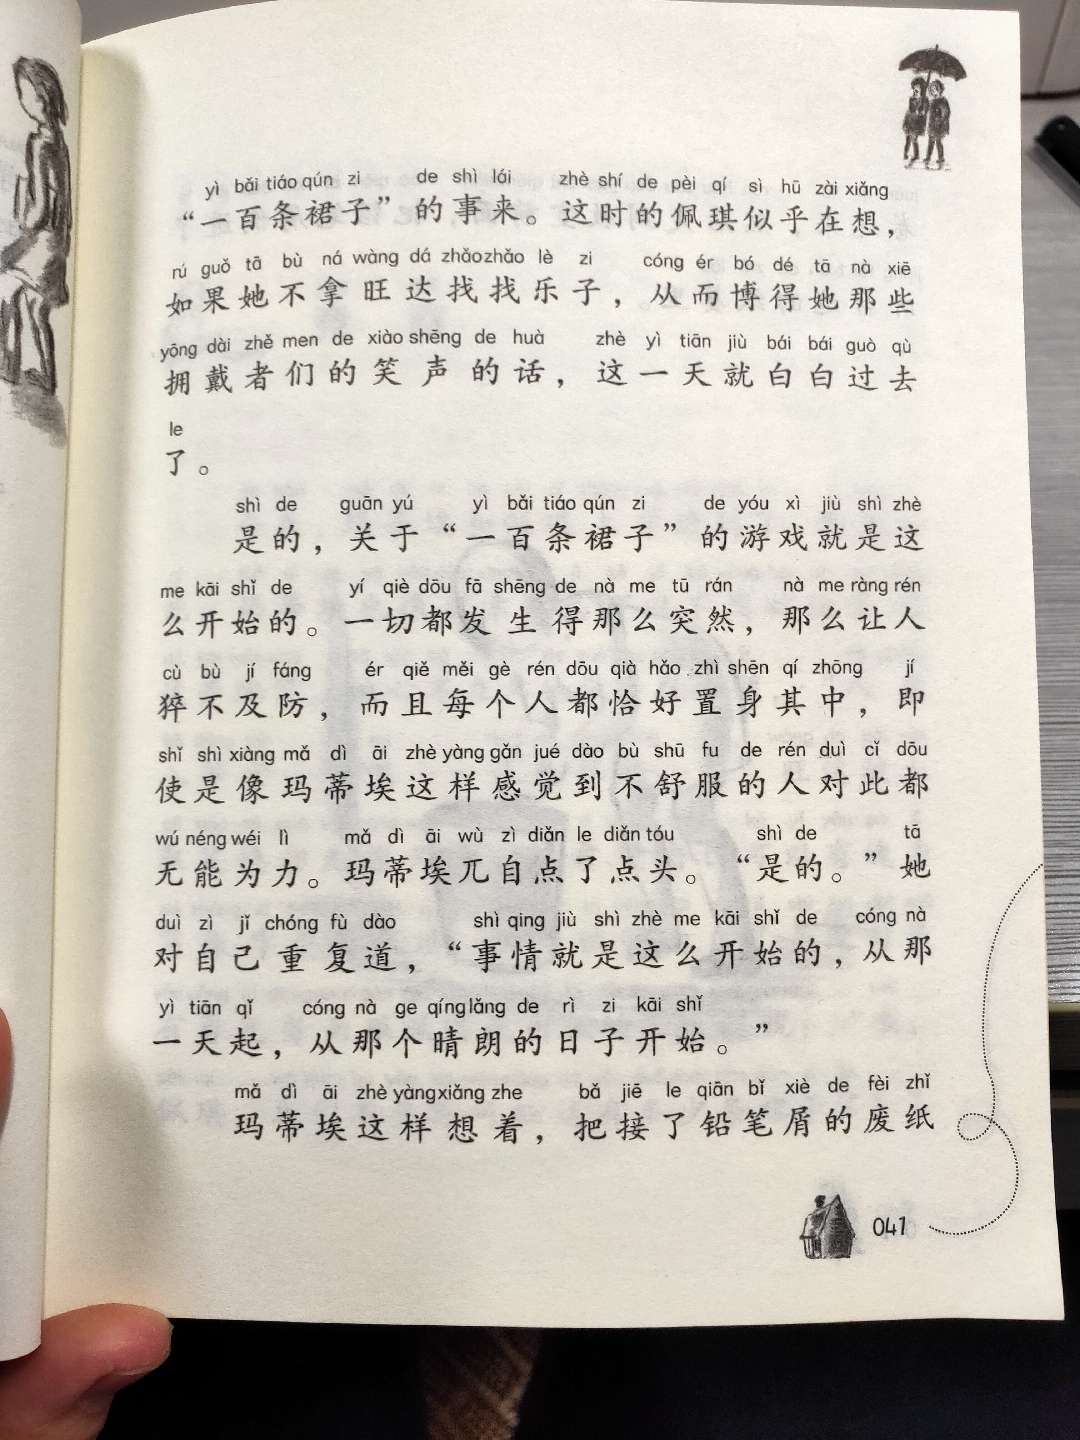 yì bǎi tiáo qún zi de shì lái zhè shí de pèi qí sì hū zài xiǎng
“一百条裙子”的事来。这时的佩琪似乎在想，
rú guǒ tā bù ná wàng dá zhǎo zhǎo lè zi cóng ér bó dé tā nà xiē
如果她不拿旺达找找乐子，从而博得她那些
yōng dài zhě men de xiào shēng de huà zhè yì tiān jiù bái bái guò qù
拥戴者们的笑声的话，这一天就白白过去
le
了。
shì de guān yú yì bǎi tiáo qún zi de yóu xì jiù shì zhè
是的，关于“一百条裙子”的游戏就是这
me kāi shǐ de yí qiè dōu fā shēng de nà me tū rán nà me ràng rén
么开始的。一切都发生得那么突然，那么让人
cù bù jí fáng ér qiě měi gè rén dōu qià hǎo zhì shēn qí zhōng jí
猝不及防，而且每个人都恰好置身其中，即
shǐ shì xiàng mǎ dì āi zhè yàng gǎn jué dào bù shū fu de rén duì cǐ dōu
使是像玛蒂埃这样感觉到不舒服的人对此都
wú néng wéi lì mǎ dì āi wù zì diǎn le diǎn tóu shì de tā
无能为力。玛蒂埃兀自点了点头。“是的。”她
duì zì jǐ chóng fù dào shì qing jiù shì zhè me kāi shǐ de cóng nà
对自己重复道，“事情就是这么开始的，从那
yì tiān qǐ cóng nà ge qíng lǎng de rì zi kāi shǐ
一天起，从那个晴朗的日子开始。”
mǎ dì āi zhè yàng xiǎng zhe bǎ jiē le qiān bǐ xiè de fèi zhǐ
玛蒂埃这样想着，把接了铅笔屑的废纸
041